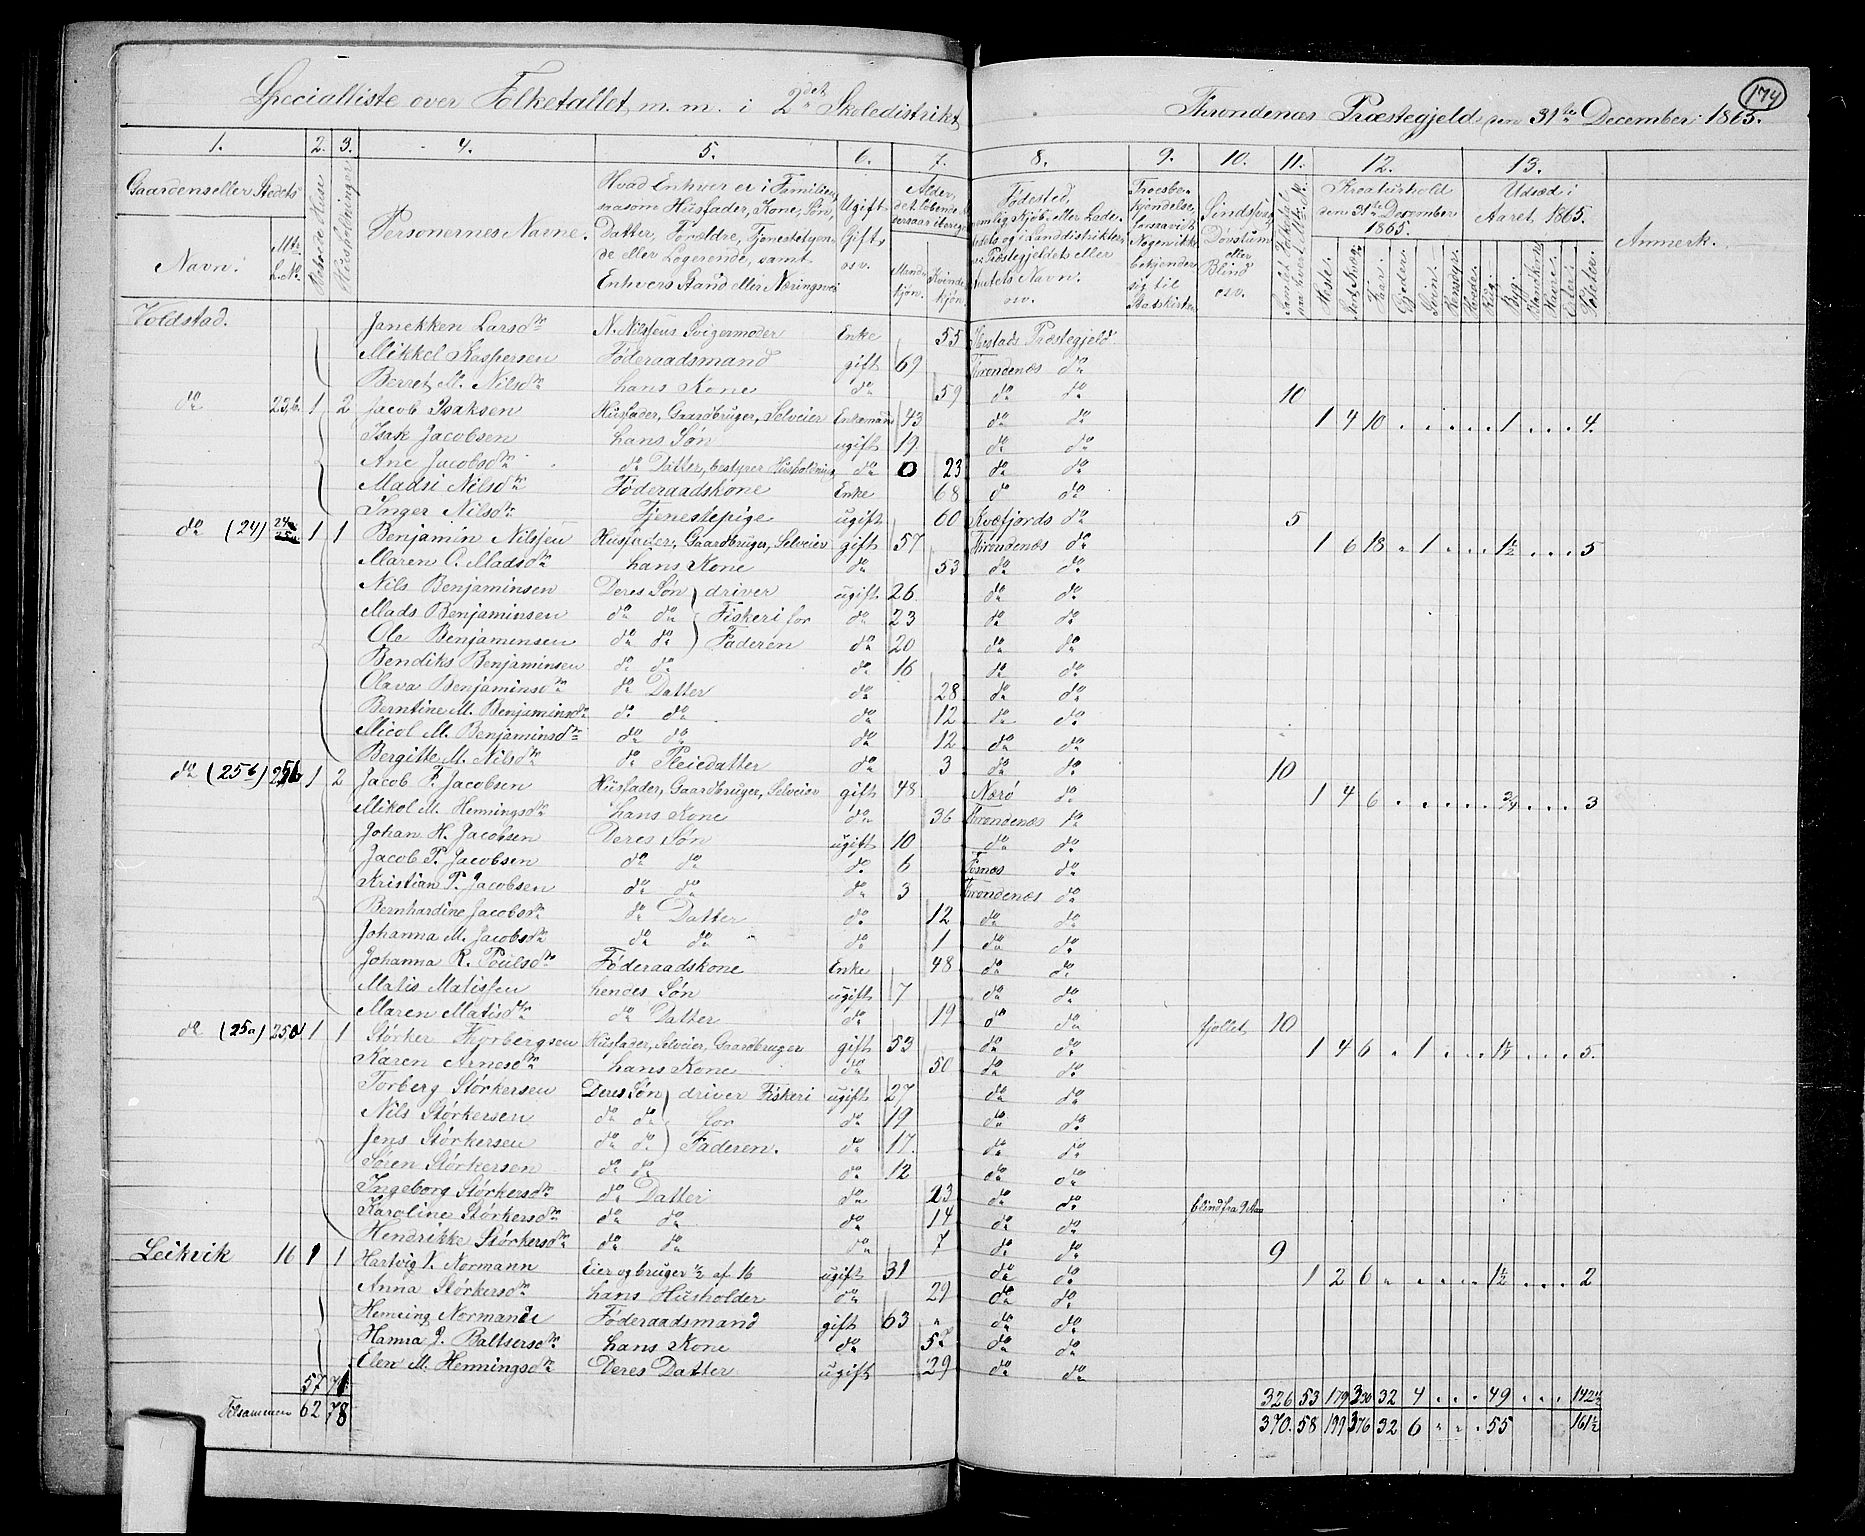 174
Specialliste over Folketallet m. m. i 2det Skoledistrikt Throndenæs Præstegjeld den 31te December 1865.
1. 2. 3. 4. 5. 6. 7. 8. 9. 10. 11. 12. 13.
Gaardens eller Stedets Navn. Mtr. L.No. Beboede Huse Husholdninger Personernes Navne. Hvad Enhver er i Familien, saasom Husfader, Kone, Søn, Datter, Forældre, Tjenestetyende eller Logerende, samt Enhvers Stand eller Næringsvei Ugift Gift osv. Alder, det løbende Mandkjøn. Kvindekjøn Fødested, Præstegjeldets eller Navn. osv. Troesbekjendelse, forsaavidt Nogen ikke bekjender sig til Statskirken Sindssvag, Døvstum eller Blind osv. Kreaturhold den 31te December 1865. Heste. Faar. Gjeder. Svin. Rensdyr. Udsæd i Aaret 1865. Hvede. Rug. Byg. Blandkorn Havre. Erter. Poteter. Anmerk.
Voldstad. Janekken Larsdtr N. Nilssens Svigermoder Enke 55 Ibestads Præstegjeld
Mikkel Kaspersen Føderaadsmand gift 69 Throndenæs do
Berret M. Nilsdtr hans Kone do 59 do do 10
do 23,b. 1 2 Jacob Isaksen Husfader, Gaardbruger, Selveier Enkemand 43 do do 1 4 10 . . . . . 1 . . . 4.
Isak Jacobsen hans Søn ugift 19 do do
Ane Jacobsdtr do Datter, bestyrer Husholdning do 0 23 do do
Madsi Nilsdtr Føderaadskone Enke 68 do do
Inger Nilsdtr Tjenestepige ugift 60 Kvæfjords do 5
do (24) 24 1 1 Benjamin Nilssen Husfader, Gaardbruger, Selveier gift 57 Throndenæs do 1 6 18 . 1 . . . 1½ . . . 5
Maren O. Madsdtr hans Kone do 53 do do
Nils Benjaminsen Deres Søn driver ugift 26 do do
Mads Benjaminsen do do Fiskeri for do 23 do do
Ole Benjaminsen do do Faderen do 20 do do
Bendiks Benjaminsen do do do 16 do do
Olava Benjaminsdtr do Datter do 28 do do
Berntine M. Benjaminsdtr do do do 12 do do
Micol M. Benjaminsdtr do do do 12 do do
Bergitte M. Nilsdtr do Pleiedatter do 3 do do 10
do (25b) 25b 1 2 Jacob F. Jacobsen Husfader, Gaardbruger, Selveier gift 48 Nærø do 1 4 6 . . . . . ¾ . . . 3
Mikol M. Henningsdtr hans Kone do 36 Throndenæs do
Johan H. Jacobsen Deres Søn ugift 10 do do
Jacob P. Jacobsen do do do 6 Fosnæs do
Kristian P. Jacobsen do do do 3 Throndenæs do
Bernhardine Jacobsdtr do Datter do 12 do do
Johanna M. Jacobsdtr do do do 1 do do
Johanna R. Poulsdtr Føderaadskone Enke 48 do do
Matis Matissen hendes Søn ugift 7 do do
Maren Matisdtr do Datter do 19 do do fjollet 10
do (25a) 25,a 1 1 Størker Thorbergsen Husfader, Selveier, Gaardbruger gift 53 do do 1 4 6 . 1 . . . 1¼ . . . 5.
Karen Arnesdtr hans Kone do 50 do do
Torberg Størkersen Deres Søn driver Fiskeri ugift 27 do do
Nils Størkersen do do for do 19 do do
Jens Størkersen do do Faderen. do 17. do do
Søren Størkersen do do do 12 do do
Ingeborg Størkersdtr do Datter do 23 do do
Karoline Størkersdtr do do do 14 do do blind fra 9 Aar
Hendrikke Størkersdtr do do do 7 do do 9
Leikvik 16 1 1 Hartvig N. Normann Eier og bruger ½ af 16 ugift 31 do do 1 2 6 . . . . . 1½ . . . 2
Anna Størkersdtr hans Husholder do 29 do do
Henning Normann Føderaadsmand gift 63 do do
Hanna J. Baltsersdtr hans Kone do 57 do do
Elen M. Henningsdtr Deres Datter ugift 29 do do
57 71 326 53 179 330 32 4 . . . 49 . . . 142½
Tilsammen 62 78 370. 58 199 376 32 6 . . . 55 161½